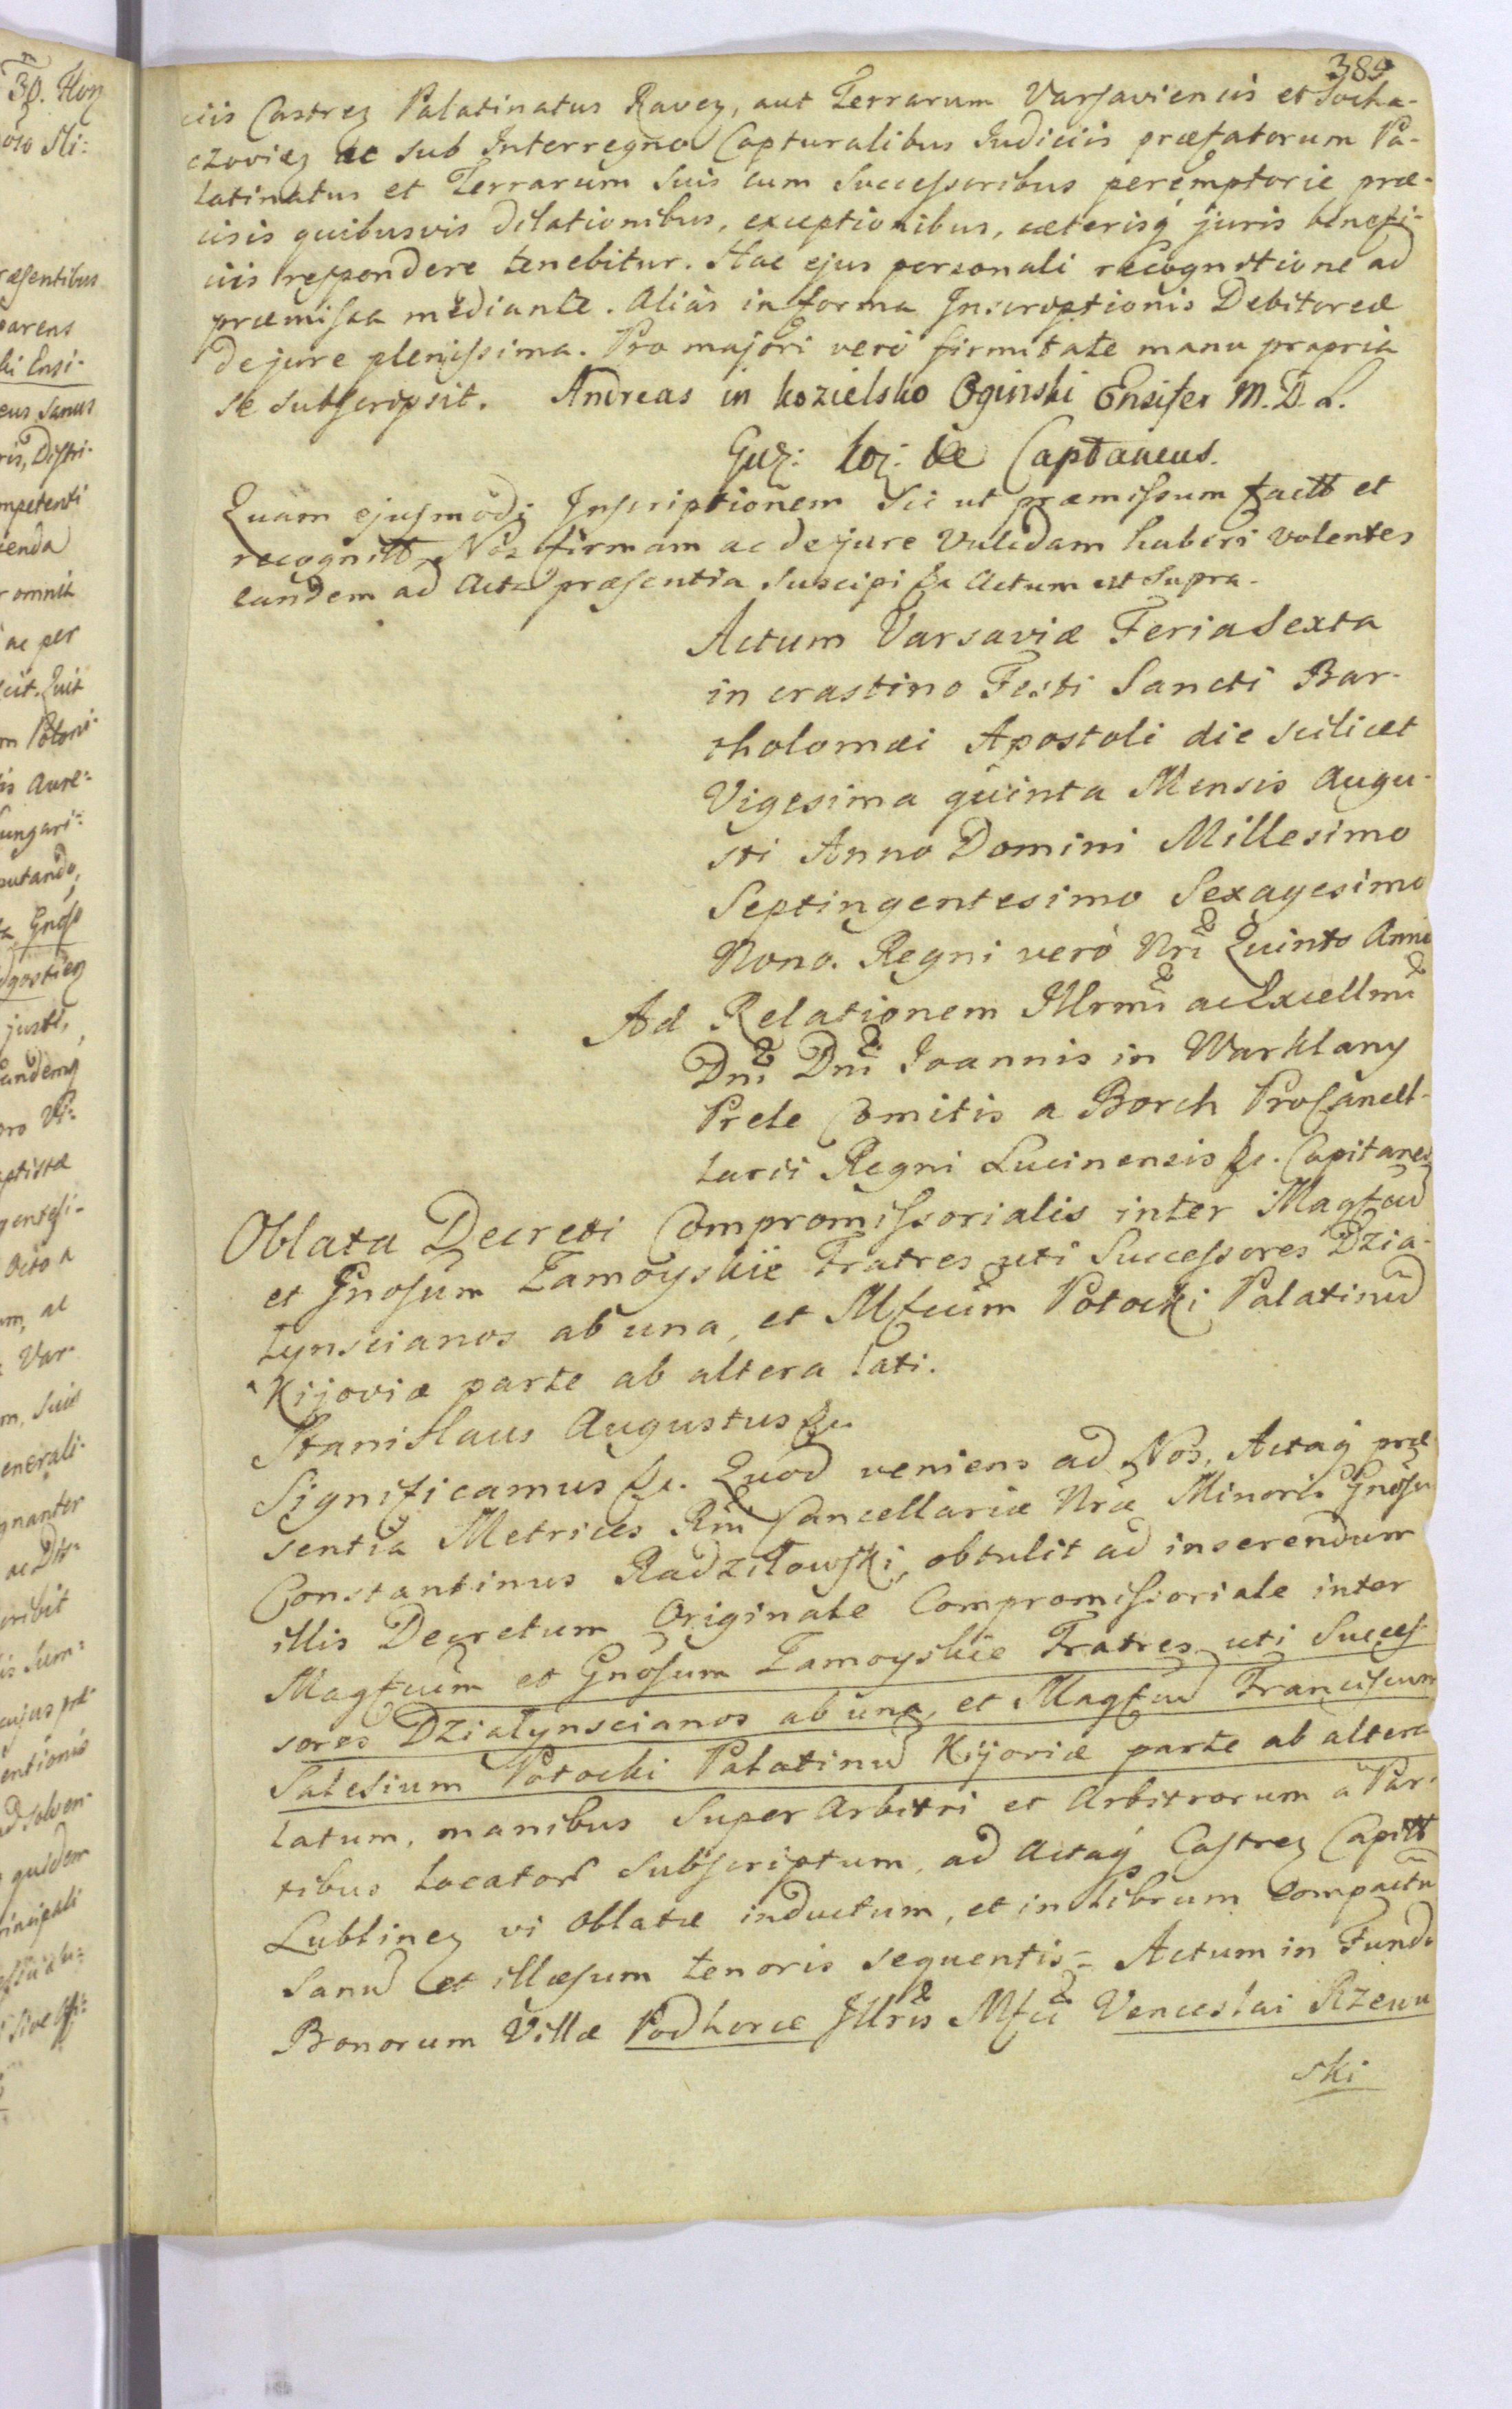 389
ciis Castreꝫ Palatinatus Raveꝫ, aut Terrarum Varsaviensis et Socha-
czovieꝫ ac sub Interregno Capturalibus Judiciis præfatorum Pa-
latinatus et Terrarum suis cum Successoribus peremptorie præ-
cisis quibusvis dilationibus, exceptionibus, cæterisq́ juris benefi-
ciis respondere tenebitur. Hac ejus personali recognitione ad
præmissa mediante. Aliàs in forma Inscriptionis Debitoreæ
de jure plenissima. Pro majori verò firmitate manu propria
se subscripsit. Andreas in Kozielsko Oginski Ensifer M.D.L.
Guz: Loj: &c Captaneus.
Quam ejusmodi Inscriptionem sic ut præmissum factt et
recognitt, Nos firmam ac de jure validam haberi volentes
eandem ad Acta præsentia suscipi &c Actum ut supra.
Actum Varsaviæ Feria Sexta
in crastino Festi Sancti Bar-
tholomæi Apostoli die scilicet
Vigesima quinta Mensis Augu-
sti Anno Domini Millesimo
Septingentesimo Sexagesimo
Nono. Regni verò Nri Quinto Anno
Ad Relationem Illrmi ac Excellmi
Dni Dni Joannis in Warklany
Prele Comitis a Borch ProCancel-
larii Regni Lucinensis &c. Capitanei
Oblata Decreti Compromissorialis inter Magfcũ
et Gnosum Zamoyskie Fratres uti Successores Dzia-
łynscianos ab una, et Mfcum Potocki Palatinũ
Kijoviæ parte ab altera lati.
Stanislaus Augustus &c.
Significamus &c. Quod veniens ad Nos, Actaq́ præ
sentia Metrices Rni Cancellariæ Nræ Minoris Gnosus
Constantinus Radziłowski, obtulit ad inserendum
illis Decretum Originale Compromissoriale inter
Magfcum et Gnosum Zamoyskie Fratres uti Succes-
sores Działynscianos ab una, et Magfcũ Franciscum
Salesium Potocki Palatinũ Kijoviæ parte ab altera
latum, manibus Super Arbitri et Arbitrorum à Par-
tibus locator subscriptum, ad Actaq́ Castreꝫ Capitt
Lublineꝫ vi Oblatæ inductum, et in Librum compactũ
Sanũ et illæsum tenoris sequentis = Actum in Fundo
Bonorum Villæ Podhorce Illris Mfci Venceslai Rzewu
ski